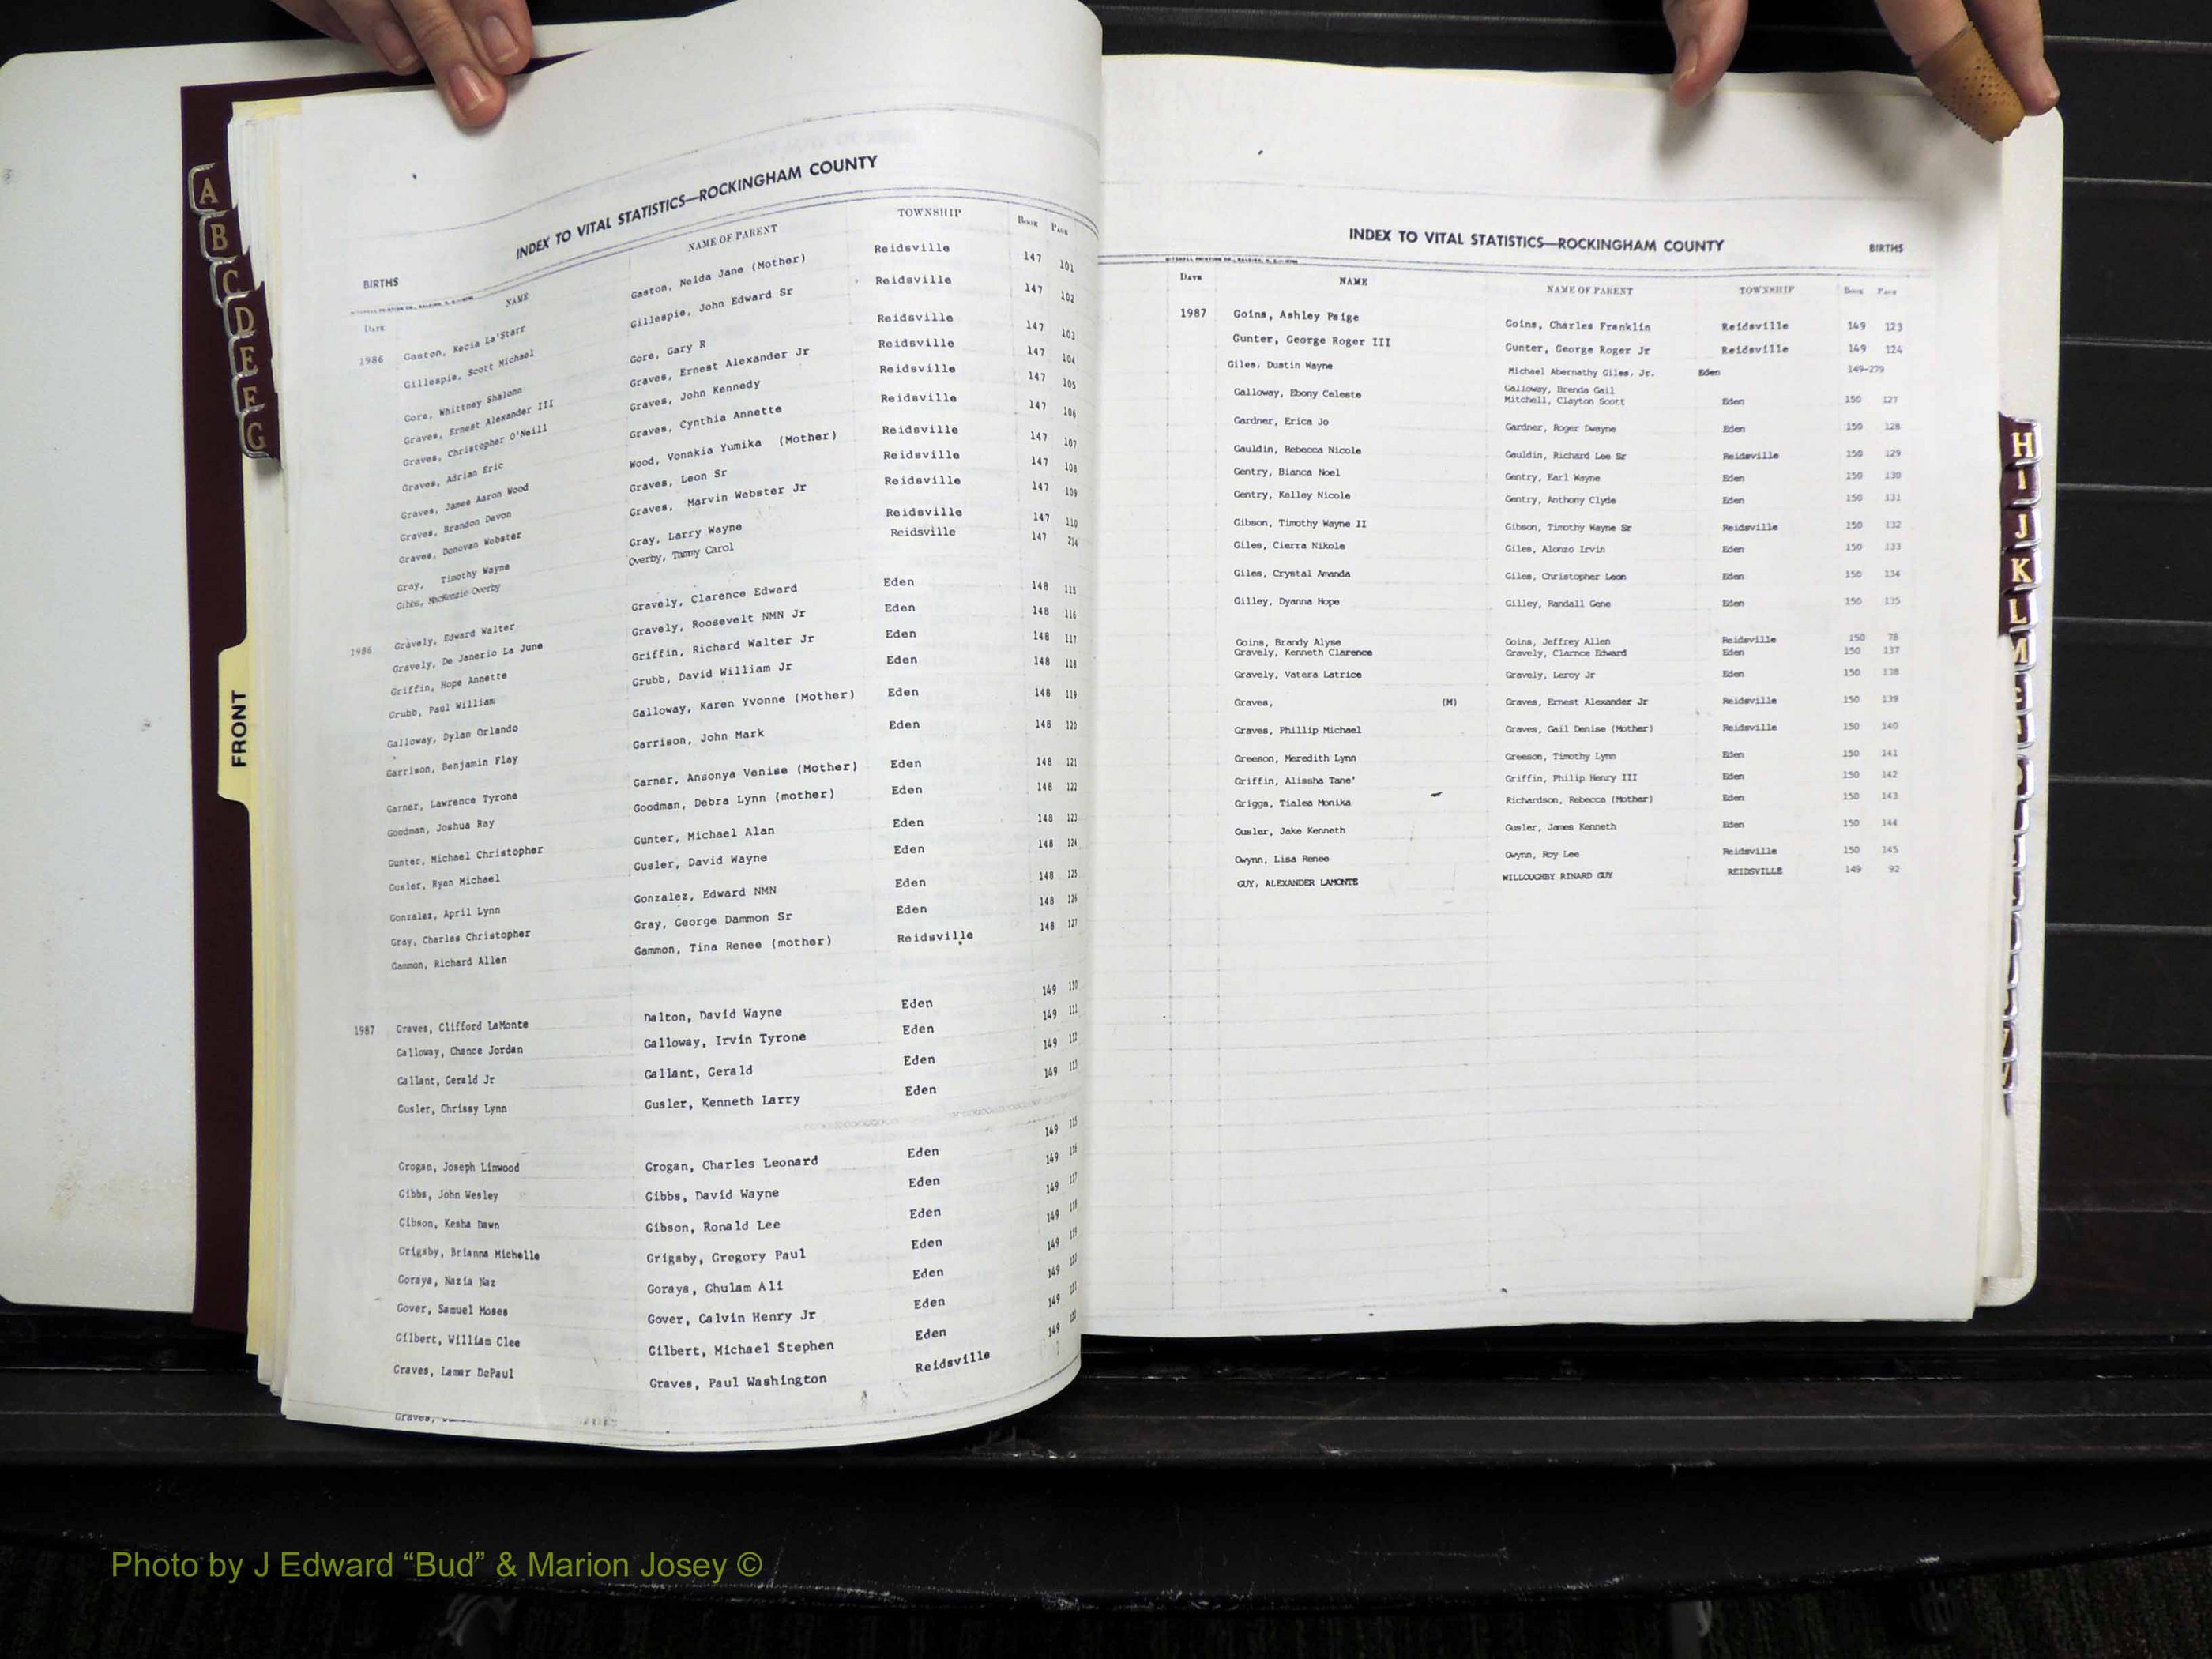 INDEX TO VITAL STATISTICS—ROCKINGHAM COUNTY
BIRTHS
DATE NAME NAME OF PARENT TOWNSHIP BOOK PAGE
1986 Gaston, Kecia La'Starr Gaston, Nelda Jane (Mother) Reidsville 147 101
Gillespie, Scott Michael Gillespie, John Edward Sr Reidsville 147 102
Gore, Whittney Shalonn Gore, Gary R Reidsville 147 103
Graves, Ernest Alexander III Graves, Ernest Alexander Jr Reidsville 147 104
Graves, Christopher O'Neill Graves, John Kennedy Reidsville 147 105
Graves, Adrian Eric Graves, Cynthia Annette Reidsville 147 106
Graves, James Aaron Wood Wood, Vonnkia Yumika (Mother) Reidsville 147 107
Graves, Brandon Devon Graves, Leon Sr Reidsville 147 108
Graves, Donovan Webster Graves, Marvin Webster Jr Reidsville 147 109
Gray, Timothy Wayne Gray, Larry Wayne Reidsville 147 110
Gibbs, MacKenzie Overby Overby, Tammy Carol Reidsville 147 214
1986 Gravely, Edward Walter Gravely, Clarence Edward Eden 148 115
Gravely, De Janerio La June Gravely, Roosevelt NMN Jr Eden 148 116
Griffin, Hope Annette Griffin, Richard Walter Jr Eden 148 117
Grubb, Paul William Grubb, David William Jr Eden 148 118
Galloway, Dylan Orlando Galloway, Karen Yvonne (Mother) Eden 148 119
Garrison, Benjamin Flay Garrison, John Mark Eden 148 120
Garner, Lawrence Tyrone Garner, Ansonya Venise (Mother) Eden 148 121
Goodman, Joshua Ray Goodman, Debra Lynn (mother) Eden 148 122
Gunter, Michael Christopher Gunter, Michael Alan Eden 148 123
Gusler, Ryan Michael Gusler, David Wayne Eden 148 124
Gonzalez, April Lynn Gonzalez, Edward NMN Eden 148 125
Gray, Charles Christopher Gray, George Dammon Sr Eden 148 126
Gammon, Richard Allen Gammon, Tina Renee (mother) Reidsville 148 127
1987 Graves, Clifford LaMonte Dalton, David Wayne Eden 149 110
Galloway, Chance Jordan Galloway, Irvin Tyrone Eden 149 111
Gallant, Gerald Jr Gallant, Gerald Eden 149 112
Gusler, Chrissy Lynn Gusler, Kenneth Larry Eden 149 113
Grogan, Joseph Linwood Grogan, Charles Leonard Eden 149 115
Gibbs, John Wesley Gibbs, David Wayne Eden 149 116
Gibson, Kesha Dawn Gibson, Ronald Lee Eden 149 117
Grigsby, Brianna Michelle Grigsby, Gregory Paul Eden 149 118
Goraya, Nazia Naz Goraya, Chulam Ali Eden 149 119
Gover, Samuel Moses Gover, Calvin Henry Jr Eden 149 120
Gilbert, William Clee Gilbert, Michael Stephen Eden 149 121
Graves, Lamar DePaul Graves, Paul Washington Reidsville 149 122
Graves,
INDEX TO VITAL STATISTICS—ROCKINGHAM COUNTY BIRTHS
DATE NAME NAME OF PARENT TOWNSHIP BOOK PAGE
1987 Goins, Ashley Paige Goins, Charles Franklin Reidsville 149 123
Gunter, George Roger III Gunter, George Roger Jr Reidsville 149 124
Giles, Dustin Wayne Michael Abernathy Giles, Jr. Eden 149-279
Galloway, Brenda Gail
Galloway, Ebony Celeste Mitchell, Clayton Scott Eden 150 127
Gardner, Erica Jo Gardner, Roger Dwayne Eden 150 128
Gauldin, Rebecca Nicole Gauldin, Richard Lee Sr Reidsville 150 129
Gentry, Bianca Noel Gentry, Earl Wayne Eden 150 130
Gentry, Kelley Nicole Gentry, Anthony Clyde Eden 150 131
Gibson, Timothy Wayne II Gibson, Timothy Wayne Sr Reidsville 150 132
Giles, Cierra Nikole Giles, Alonzo Irvin Eden 150 133
Giles, Crystal Amanda Giles, Christopher Leon Eden 150 134
Gilley, Dyanna Hope Gilley, Randall Gene Eden 150 135
Goins, Brandy Alyse Goins, Jeffrey Allen Reidsville 150 78
Gravely, Kenneth Clarence Gravely, Clarnce Edward Eden 150 137
Gravely, Vatera Latrice Gravely, Leroy Jr Eden 150 138
Graves, (M) Graves, Ernest Alexander Jr Reidsville 150 139
Graves, Phillip Michael Graves, Gail Denise (Mother) Reidsville 150 140
Greeson, Meredith Lynn Greeson, Timothy Lynn Eden 150 141
Griffin, Alissha Tane' Griffin, Philip Henry III Eden 150 142
Griggs, Tialea Monika Richardson, Rebecca (Mother) Eden 150 143
Gusler, Jake Kenneth Gusler, James Kenneth Eden 150 144
Gwynn, Lisa Renee Gwynn, Roy Lee Reidsville 150 145
GUY, ALEXANDER LAMONTE WILLOUGHBY RINARD GUY REIDSVILLE 149 92
A
B
C
D
E
F
G
FRONT
H
I
J
K
L
M
Photo by J Edward “Bud” & Marion Josey ©